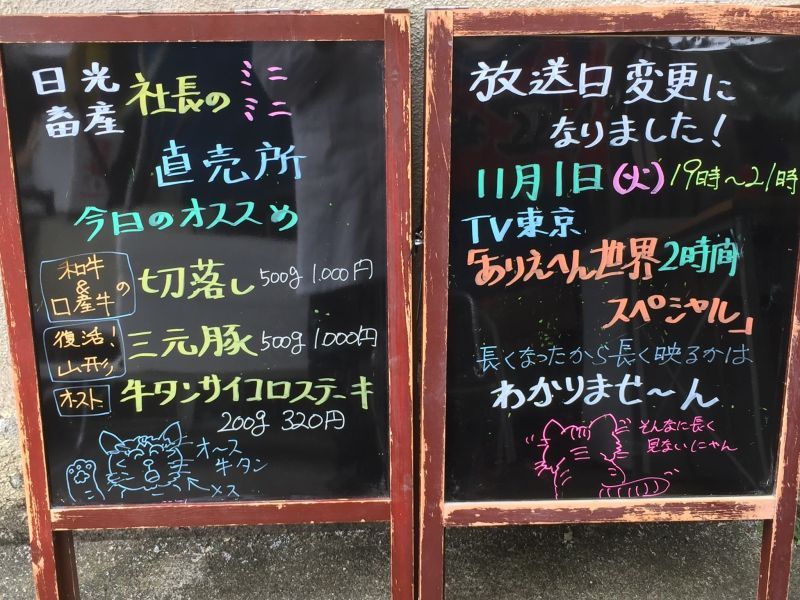 日光
畜産
社長の
ミニ
ミニ
直売所
今日のオススめ
和牛
&
口産牛の
切落し 500g 1.000円
復活!
山形
三元豚 500g 1000円
オスト
牛タンサイコロステーキ
200g 320円
オ〜ス
牛タン
メス
放送日変更に
なりました!
11月1日(火) 19時〜21時
TV東京
「ありえへん世界2時間
スペシャル」
長くなったから長く映るかは
わかりませ〜ん
そんなに長く
見ないにゃん